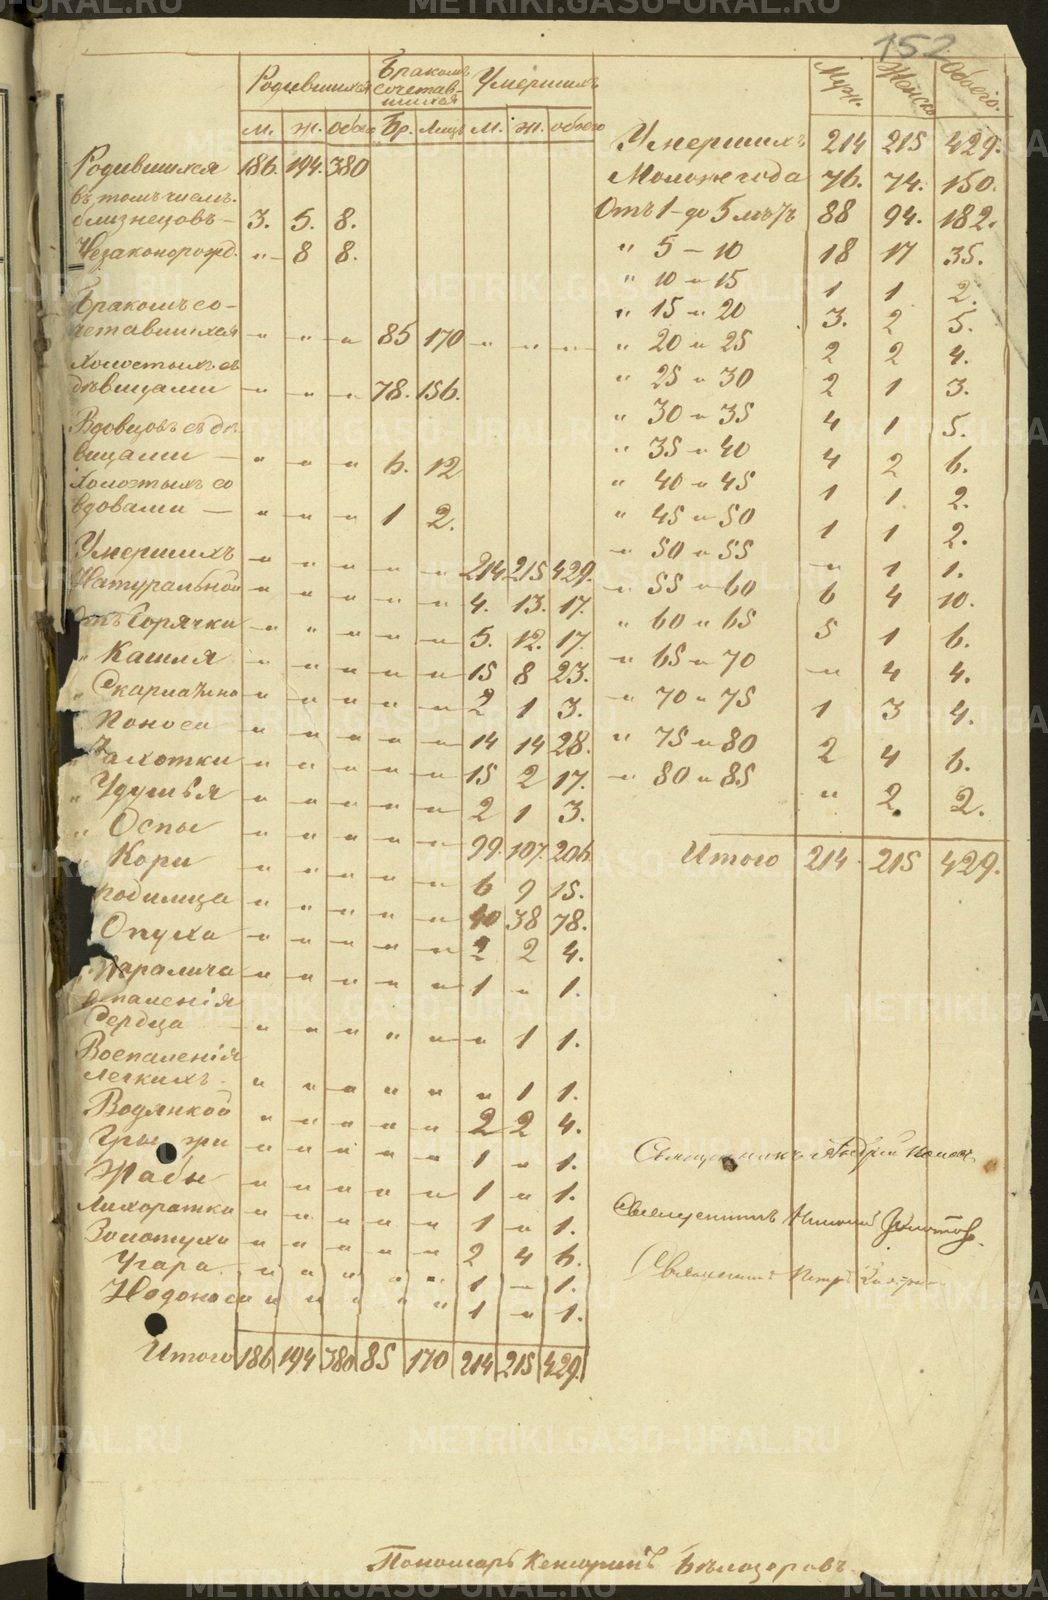 152
Родившихся Бракомъ сочетавшихся Умершихъ
м. ж. обоего Бр. Лицъ м. ж. обоего
Родившихся 186. 194. 380
въ томъ числѣ.
близнецовъ — 3. 5. 8.
Незаконорожд. " 8 8.
Бракомъ со-
четавшихся " " " 85 170 " " "
Холостыхъ съ
дѣвицами " " " 78. 156.
Вдовцовъ съ дѣ-
вицами — " " " 6. 12
Холостыхъ со
вдовами — " " " 1 2.
Умершихъ " " " " " 214 215 429.
Натуральной " " " " " 4. 13. 17.
Отъ Горячки " " " " " 5. 12. 17.
" Кашля " " " " " 15 8 23.
" Скарлатины " " " " " 2 1 3.
" Поноса " " " " " 14 14 28.
Чахотки " " " " " 15 2 17.
" Удушья " " " " " 2 1 3.
" Оспы " " " " " 99. 107. 206.
" Кори " " " " " 6 9 15.
Родимца " " " " " 40 38 78.
Опуха " " " " " 2 2 4.
" Паралича " " " " " 1 " 1.
Воспаленія
Сердца " " " " " " 1 1.
Воспаленія
легкихъ " " " " " " 1 1.
Водянкой " " " " " 2 2 4.
Грыжи " " " " " 1 " 1.
Жабы " " " " " 1 " 1.
Лихорадки " " " " " 1 " 1.
Золотухи " " " " " 2 4 6.
Угара " " " " " 1 — 1.
Недоноси " " " " " 1 " 1.
Итого 186 194 380 85 170 214 215 429.
Муж. Женск. Обоего.
Умершихъ 214 215 429.
Моложе года 76. 74. 150.
Отъ 1 - до 5 лѣтъ 88 94. 182.
" 5 — 10 18 17 35.
" 10 " 15 1 1 2.
" 15 " 20 3. 2 5.
" 20 " 25 2 2 4.
" 25 " 30 2 1 3.
" 30 " 35 4 1 5.
" 35 " 40 4 2 6.
" 40 " 45 1 1. 2.
" 45 " 50 1 1 2.
" 50 " 55 " 1 1.
" 55 " 60 6 4 10.
" 60 " 65 5 1 6.
" 65 " 70 " 4 4.
" 70 " 75 1 3 4.
" 75 " 80 2 4 6.
" 80 " 85 " 2. 2.
Итого 214 215 429.
Священникъ Андрей Попов
Священникъ Николай
Священникъ Петръ
Пономарь Кенсоринъ Бѣлозеровъ
METRIKI.GASO-URAL.RU